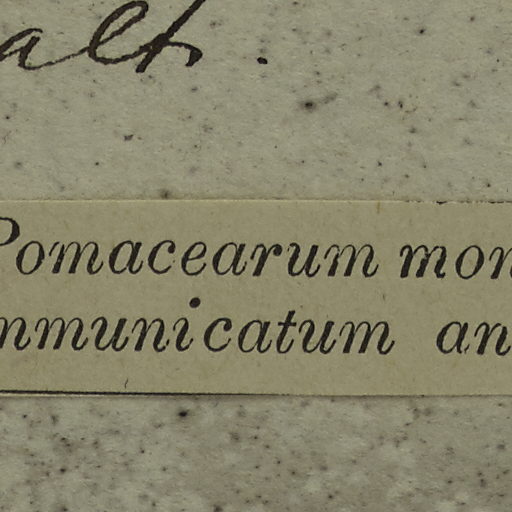 alt.
Pomacearum mon
mmunicatum an